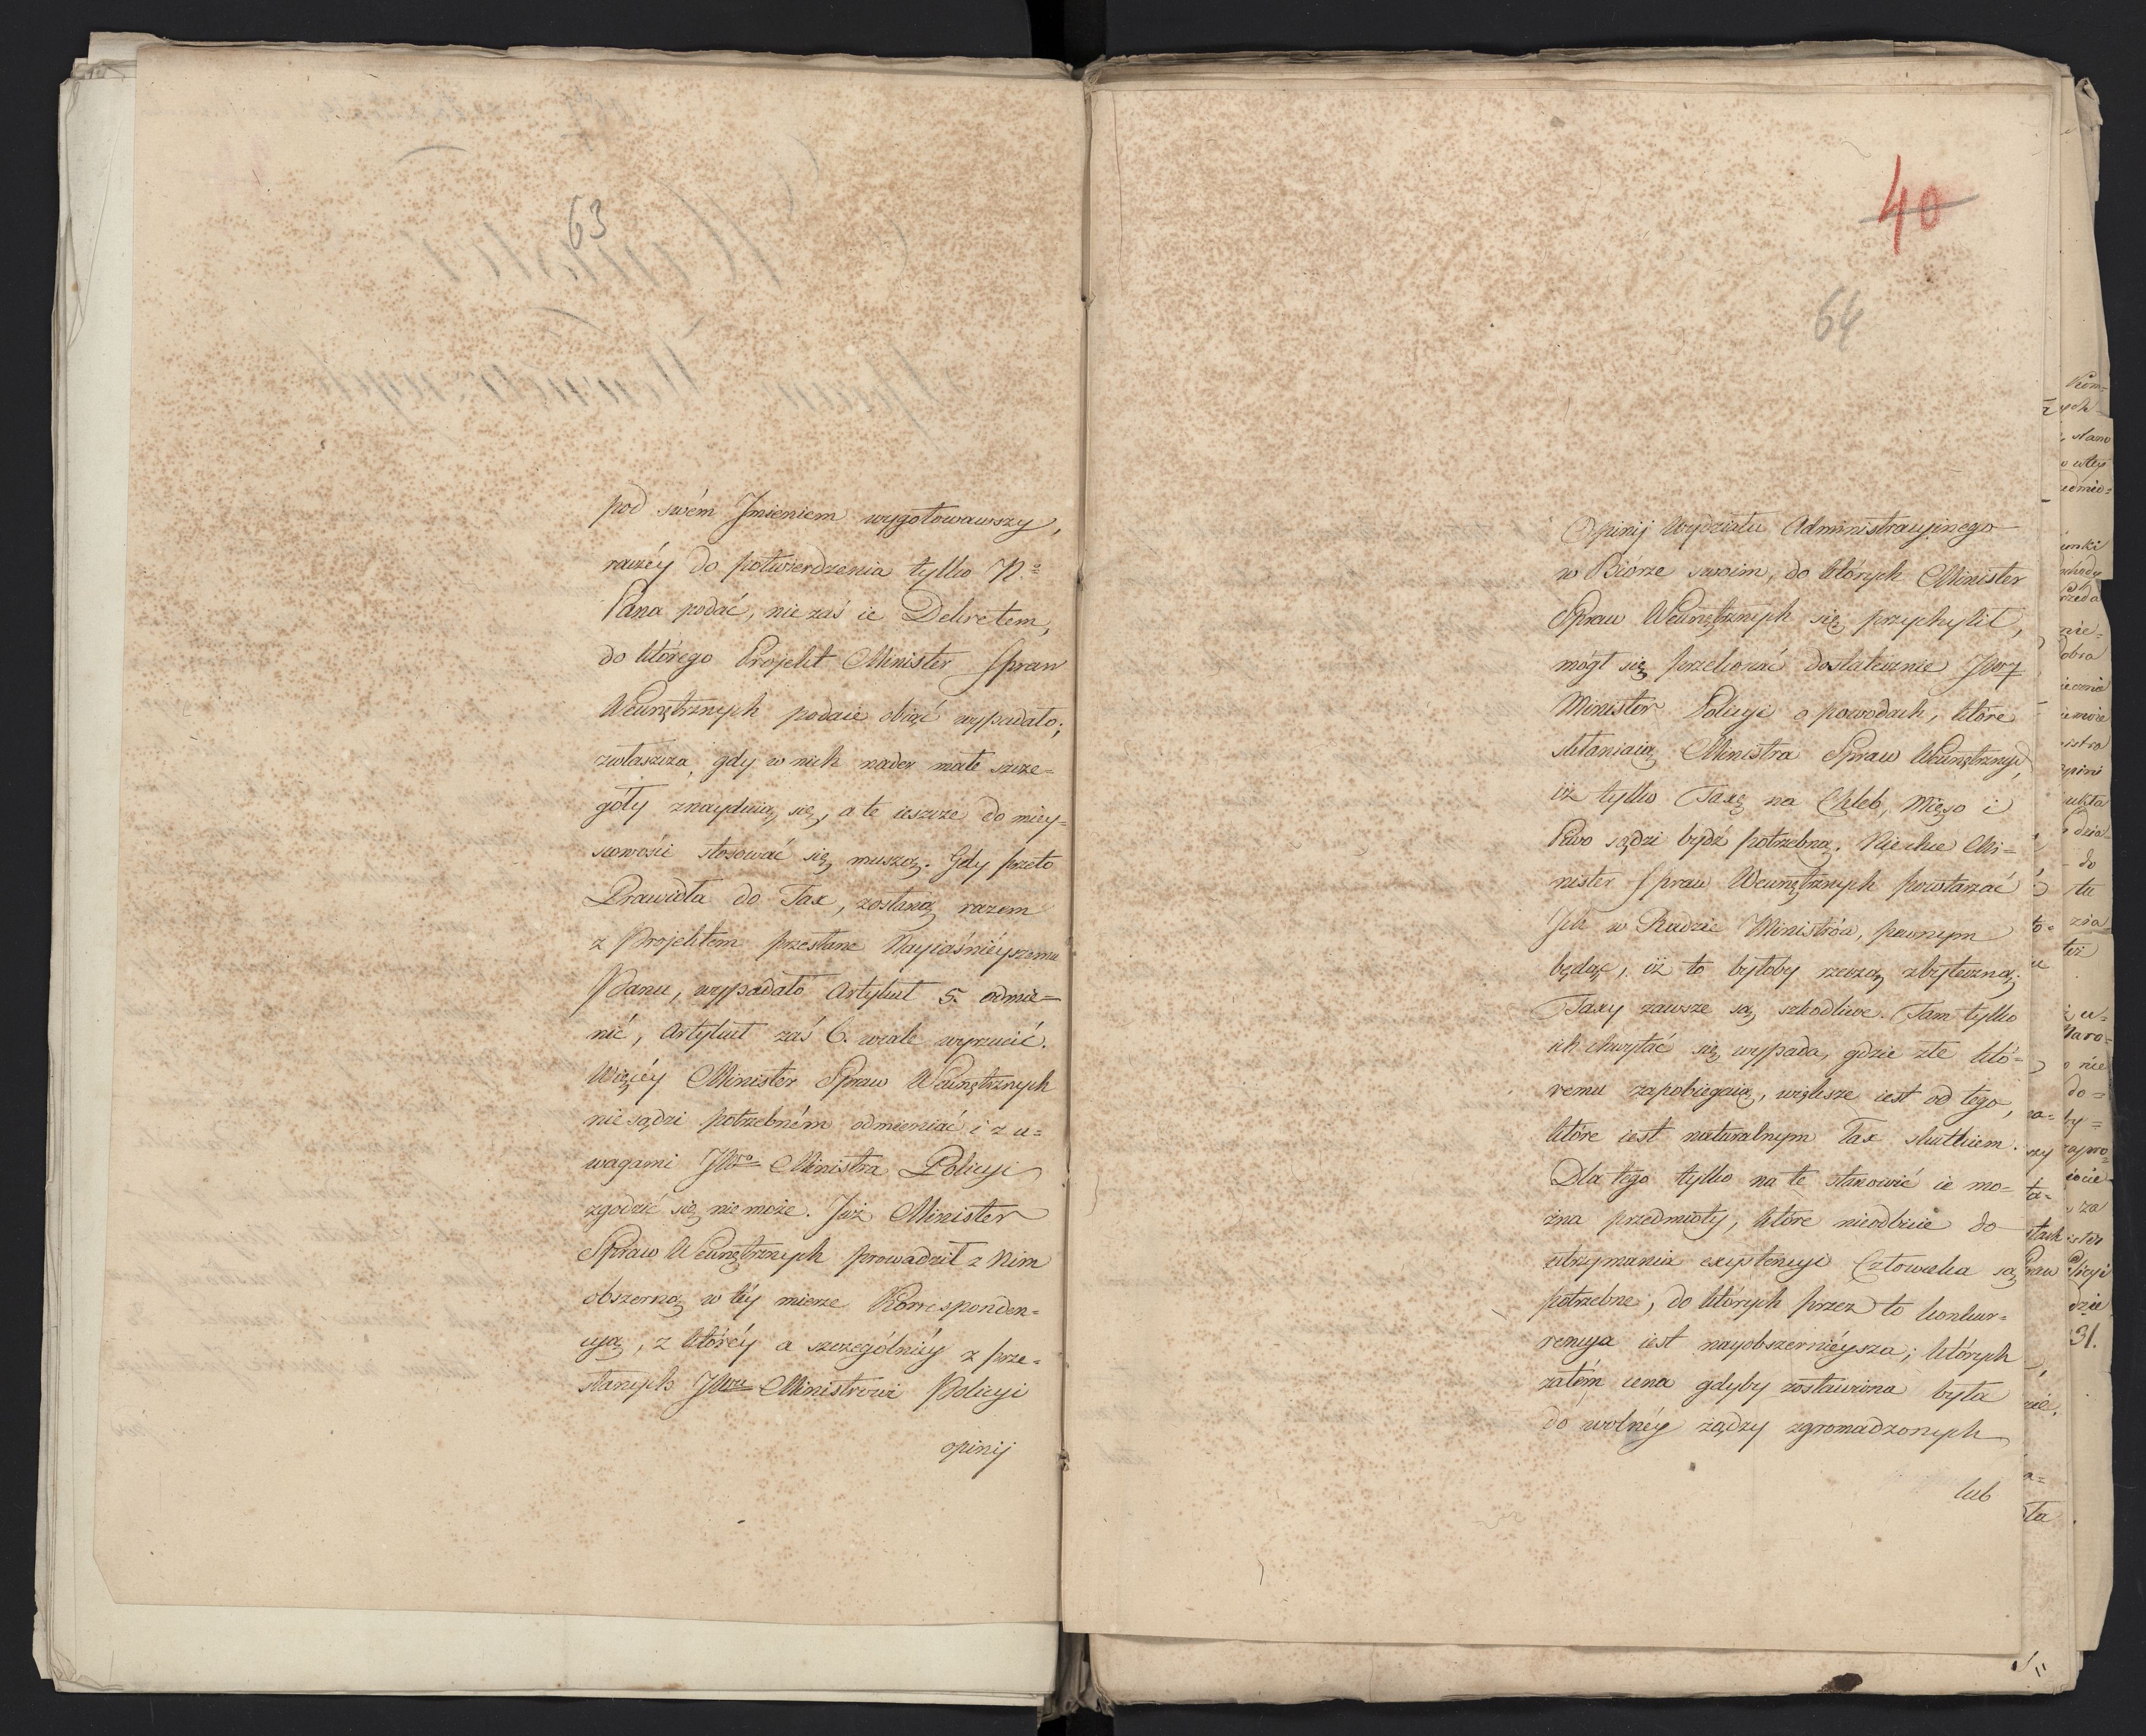 63
pod swém Jmieniem wygotowawszy,
raczéy do potwierdzenia tylko N.º
Pana podać, nie zaś ie Dekretem,
do którego Projekt Minister Spraw
Wewnętrznych podaie obiąć wypadało;
zwłaszcza, gdy w nich nader małe szcze=
góły znayduią się, a te ieszcze do miey=
scowości stosować się muszą. Gdy przeto
Prawidła do Tax, zostaną razem
z Projektem przesłane Nayiaśnieyszemu
Panu, wypadało Artykuł 5. odmie=
nić, Artykuł zaś 6. wcale wyrzucić.
Więcéy Minister Spraw Wewnętrznych
nie sądzi potrzebném odmieniać i z u=
wagami JWgo Ministra Policyi
zgodzić się nie może. Już Minister
Spraw Wewnętrznych prowadził z Nim
obszerną w téy mierze Korresponden=
cyą, z któréy a szczególniéy z prze=
słanych JWmu Ministrowi Policyi
opinij
40
64
Opinij Wydziału Administracyinego
w Biórze swoim, do których Minister
Spraw Wewnętrznych się przychylił,
mógł się przekonać dostatecznie JWny
Minister Policyi o powodach, które
skłaniaią Ministra Spraw Wewnętrznych,
iż tylko Taxę na Chleb, Mięso i
Piwo sądzi bydź potrzebną. Niechce Mi=
nister Spraw Wewnętrznych powtarzać
Jch w Radzie Ministrów, pewnym
będąc, iż to byłoby rzeczą zbyteczną.
Taxy zawsze są szkodliwe. Tam tylko
ich chwytać się wypada, gdzie złe któ=
remu zapobiegaią, większe iest od tego,
które iest naturalnym Tax skutkiem.
Dla tego tylko na te stanowić ie mo=
żna przedmioty, które nieodbicie do
utrzymania exystencyi Człowieka są
potrzebne, do których przez to konkur=
rencya iest nayobszernieysza; których
zatém cena gdyby zostawiona była
do wolnéy żądzy zgromadzonych
lub